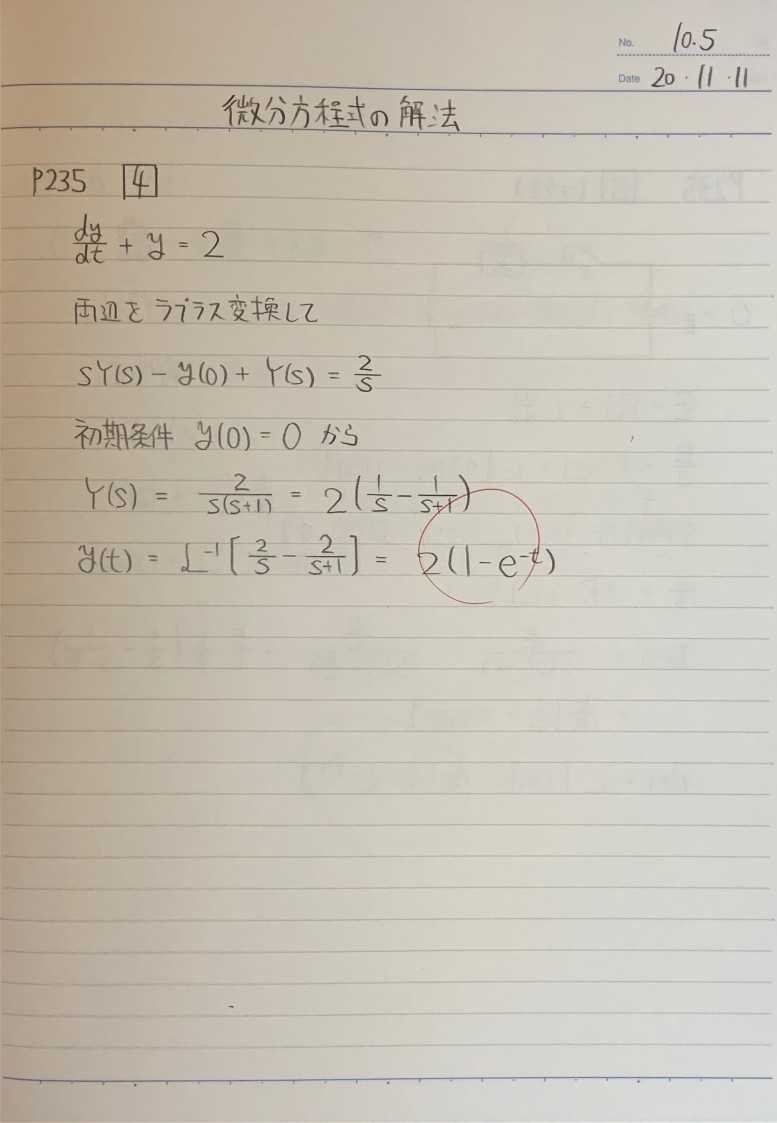 No. 10.5
Date 20・11・11
微分方程式の解法
P235 4
dy/dt + y = 2
両辺をラプラス変換して
sY(s) - y(0) + Y(s) = 2/s
初期条件 y(0) = 0 から
Y(s) = 2/s(s+1) = 2(1/s - 1/s+1)
y(t) = L⁻¹[2/s - 2/s+1] = 2(1-e⁻ᵗ)